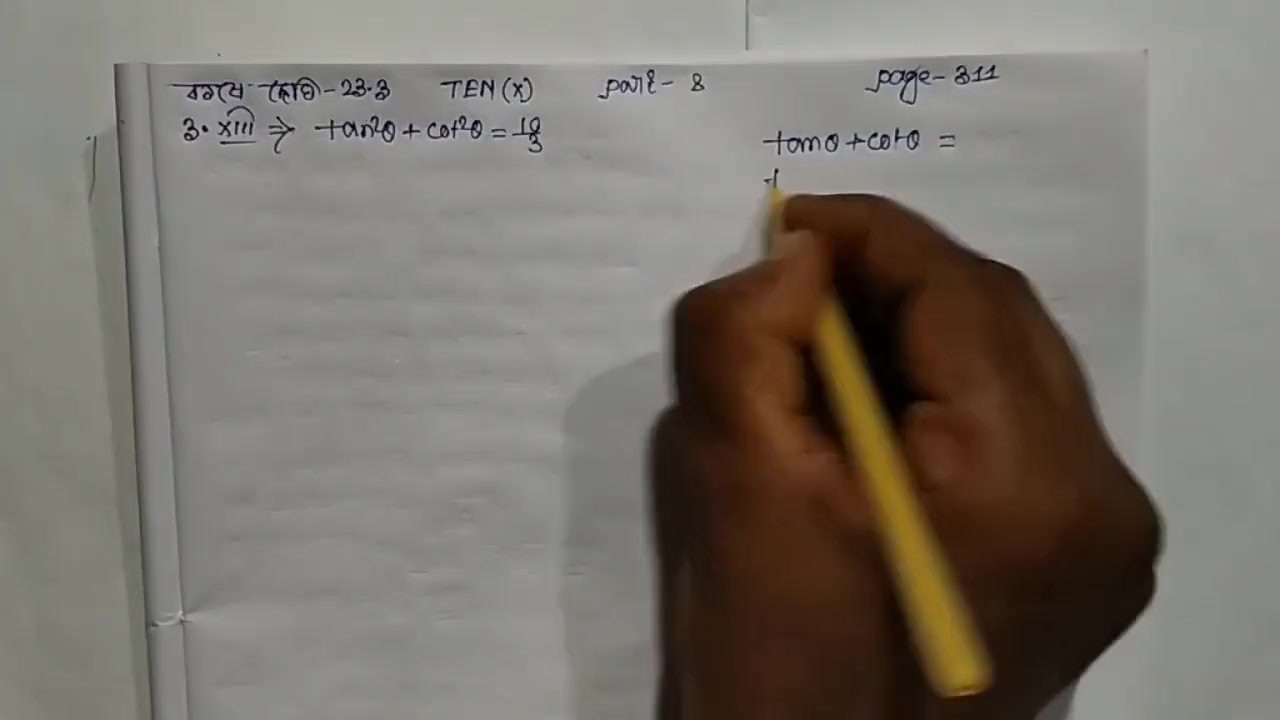 কষে দেখি-23.3 TEN (X) part- 8 page-311
3. xiii ⇒ tan²θ + cot²θ = 10/3
tanθ + cotθ =